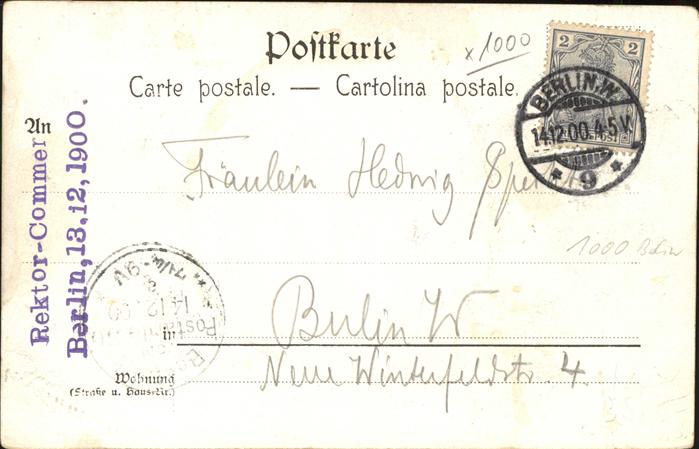 Postkarte
x 1000
Carte postale. — Cartolina postale.
2 2
BERLIN.W.
14.12.00.4-5 V.
* 9 *
An
Rektor-Commer
Berlin, 13.12.1900.
Fräulein Hedwig
1000
14.12
in
Berlin W
Wohnung
(Straße u. Haus-Nr.)
Neue Winterfeldstr. 4.